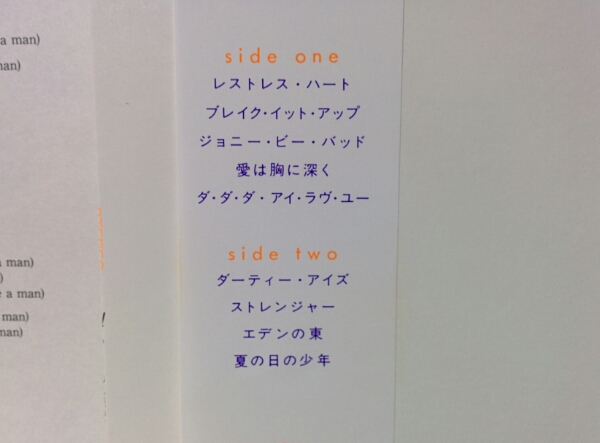 a man)
man)
a man)
)
e a man)
man)
man)
side one
レストレス・ハート
ブレイク・イット・アップ
ジョニー・ビー・バッド
愛は胸に深く
ダ・ダ・ダ・アイ・ラヴ・ユー
side two
ダーティー・アイズ
ストレンジャー
エデンの東
夏の日の少年